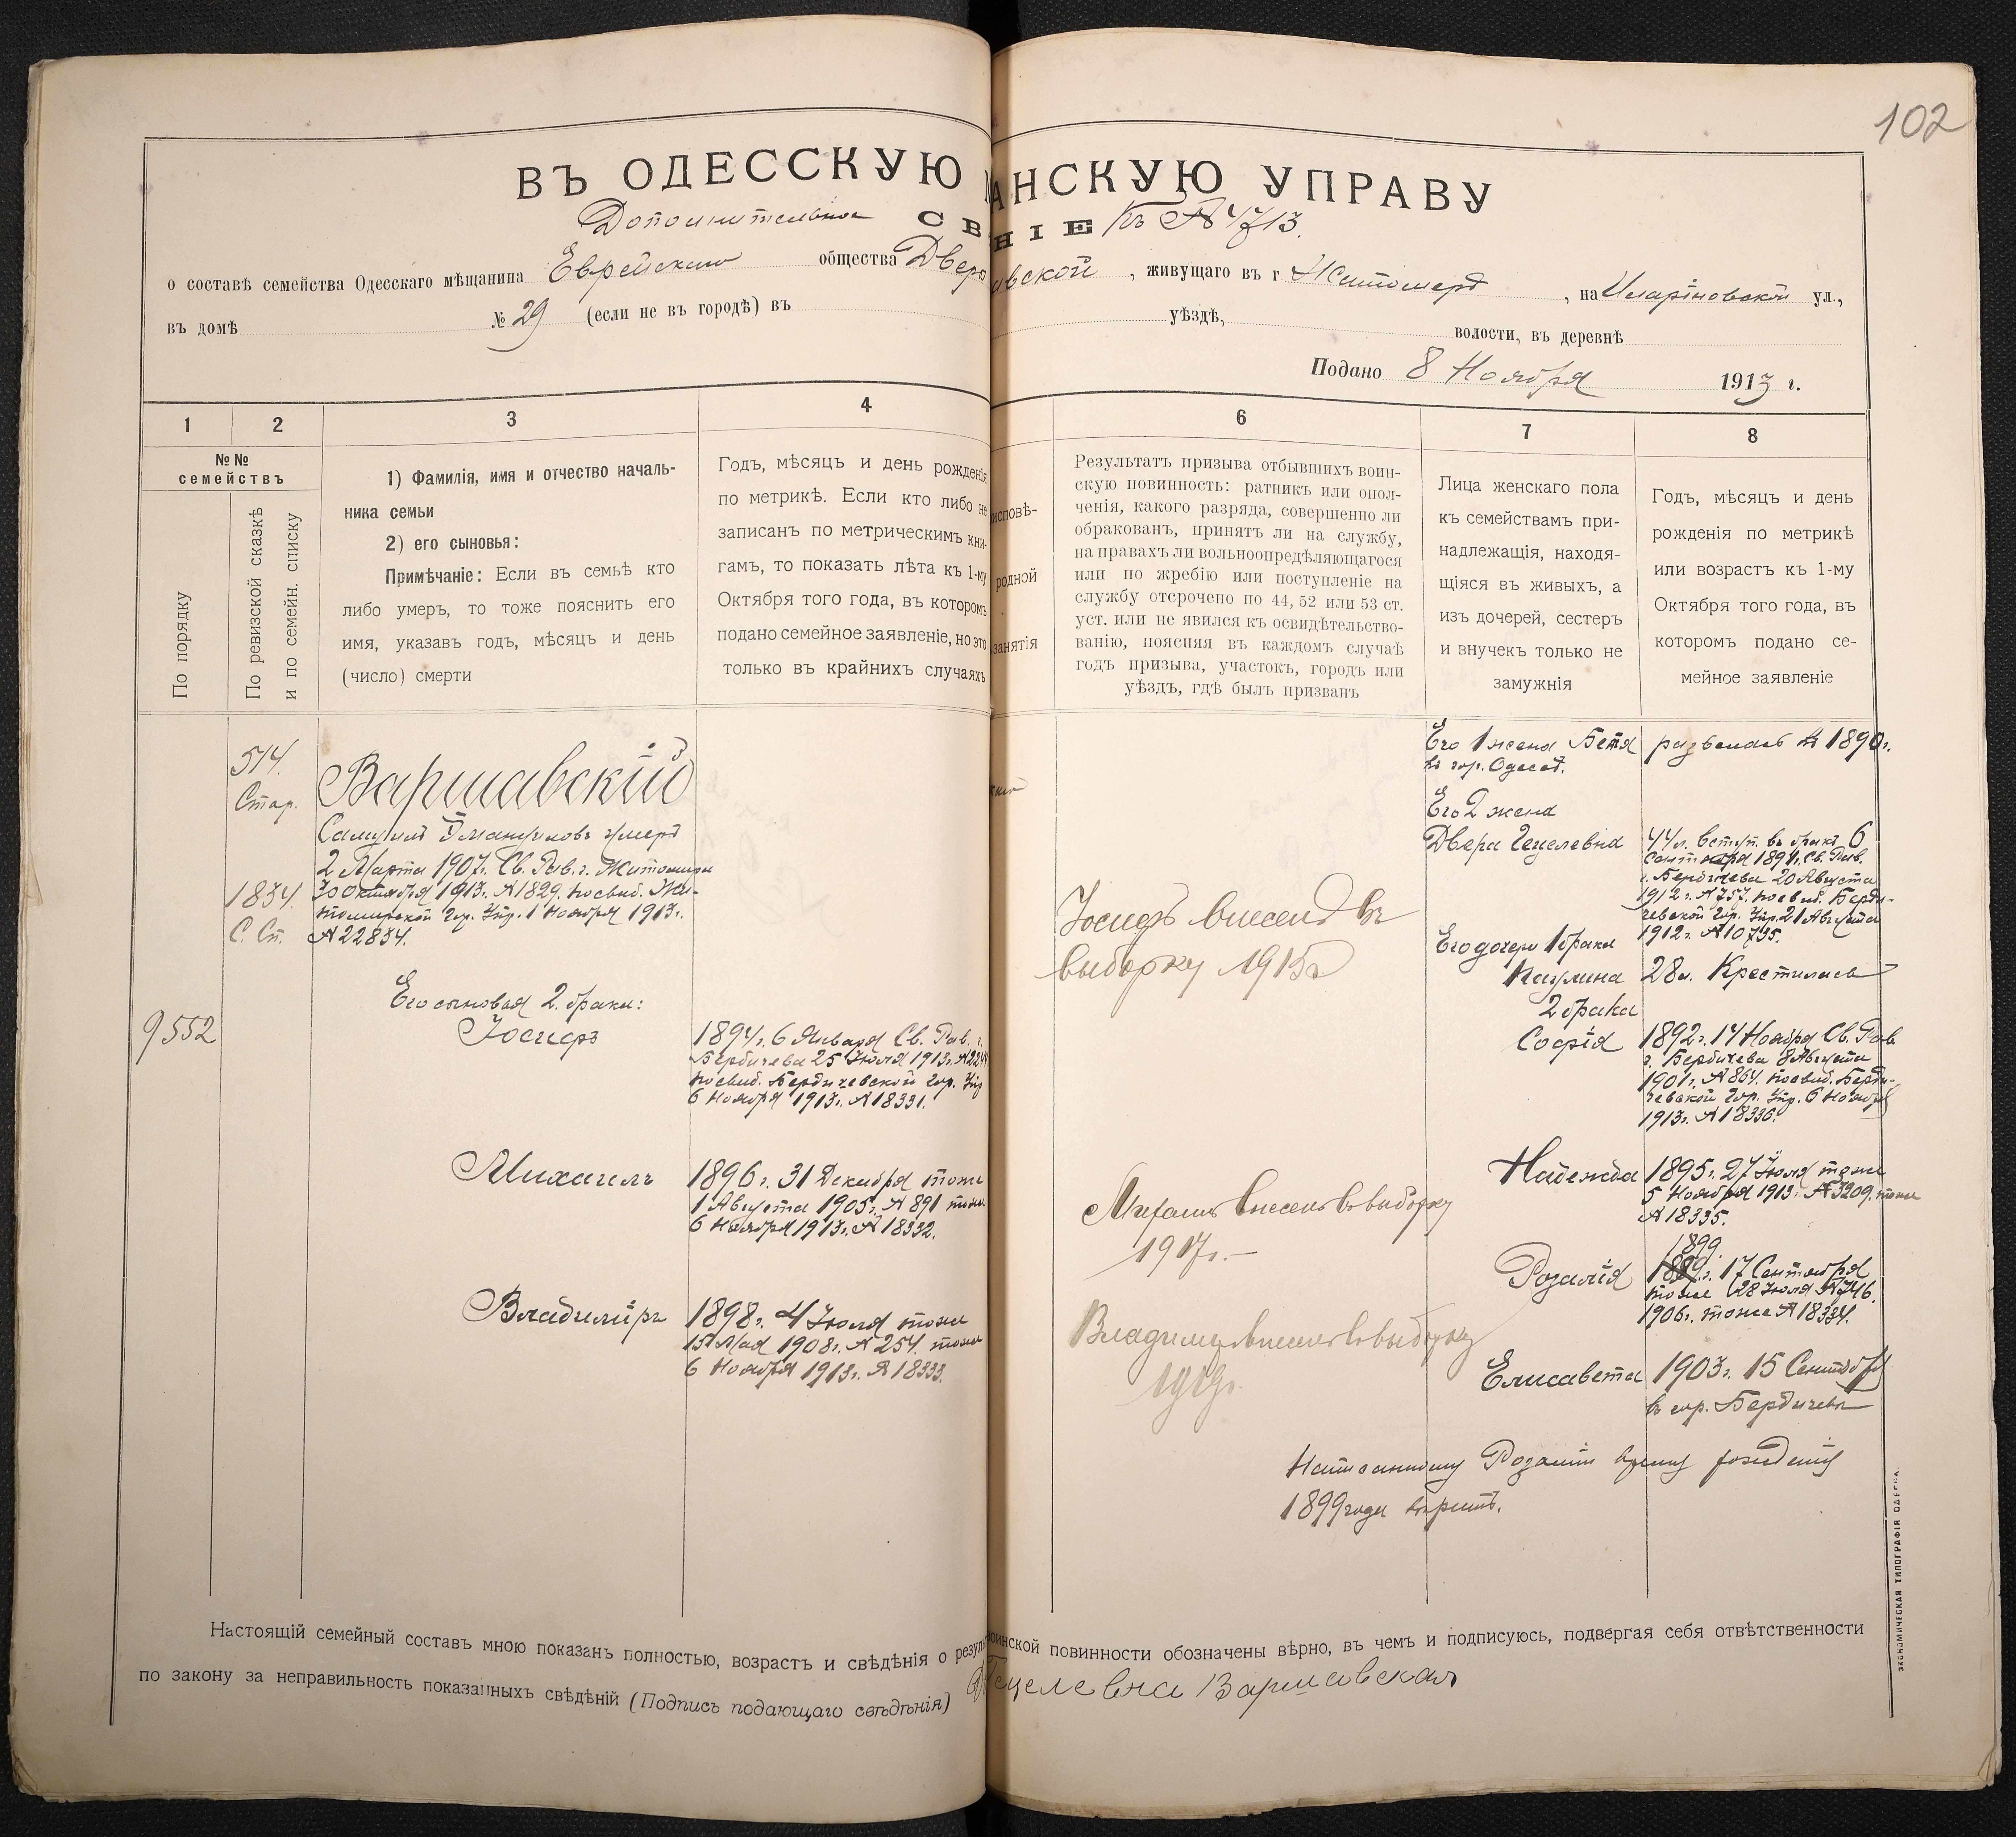 102
ВЪ ОДЕССКУЮ АНСКУЮ УПРАВУ
Дополнительное СВ НІЕ къ № 4713.
о составѣ семейства Одесскаго мѣщанина Еврейскаго общества Двера вской, живущаго въ г Житомерѣ, на Иларіновской ул.,
въ домѣ № 29 (если не въ городѣ) въ уѣздѣ, волости, въ деревнѣ
Подано 8 Ноября 1913 г.
1 2 3 4 6 7 8
№№ семействъ
По порядку
По ревизской сказкѣ
и по семейн. списку
1) Фамилія, имя и отчество началь-
ника семьи
2) его сыновья:
Примѣчаніе: Если въ семьѣ кто
либо умеръ, то тоже пояснить его
имя, указавъ годъ, мѣсяцъ и день
(число) смерти
Годъ, мѣсяцъ и день рожденія
по метрикѣ. Если кто либо не
записанъ по метрическимъ кни-
гамъ, то показать лѣта къ 1-му
Октября того года, въ которомъ
подано семейное заявленіе, но это
только въ крайнихъ случаяхъ
исповѣ-
родной
занятія
Результатъ призыва отбывшихъ воин-
скую повинность: ратникъ или опол-
ченія, какого разряда, совершенно ли
обракованъ, принятъ ли на службу,
на правахъ ли вольноопредѣляющагося
или по жребію или поступленіе на
службу отсрочено по 44, 52 или 53 ст.
уст. или не явился къ освидѣтельство-
ванію, поясняя въ каждомъ случаѣ
годъ призыва, участокъ, городъ или
уѣздъ, гдѣ былъ призванъ
Лица женскаго пола
къ семействамъ при-
надлежащія, находя-
щіяся въ живыхъ, а
изъ дочерей, сестеръ
и внучекъ только не
замужнія
Годъ, мѣсяцъ и день
рожденія по метрикѣ
или возрастъ къ 1-му
Октября того года, въ
которомъ подано се-
мейное заявленіе
514.
Стар.
1834.
С. Сп.
9552
Варшавскій
Самуилъ Эмануиловъ умеръ
2 Марта 1907г. Св. Рав. г. Житомира
30 октября 1913г. № 1829. посвид. Жи-
томирской Гор. Упр. 1 Ноября 1913г.
№ 22834.
Его сыновья 2. брака:
Іосифъ
1894г. 6 Января Св. Рав. г.
Бердичева 25 Іюля 1913г. №
посвид. Бердичевской Гор. Упр
6 Ноября 1913г. № 18331.
Михаелъ
1896г. 31 Декабря тоже
1 Августа 1905г. № 891 тоже
6 Ноября 1913г. № 18332.
Владиміръ
1898г. 4 Іюля тоже
15 Мая 1908г. № 254. тоже
6 Ноября 1913г. № 18333.
Іосифъ внесенъ въ
выборку 1915г
Михаилъ внесенъ въ выборку
1917г.
Владимиръ внесенъ въ выборку
1919г.
Его 1 жена Бетя развелась въ 1890г.
въ гор. Одессѣ.
Его 2 жена
Двера Гецелевна
44л. вступ. въ бракъ 6
Сентября 1891г. Св. Рав.
г. Бердичева 20 Августа
1912г. № 757. посвид. Берди-
чевской Гор. Упр. 21 Августа
1912г. № 10735.
Его дочери 1 брака
Паулина 28л. Крестилась
2 брака
Софія
1892г. 14 Ноября Св. Рав
г. Бердичева 8 Августа
1901г. № 864. посвид. Берди-
чевской Гор. Упр. 6 Ноября
1913г. № 18336.
Надежда
1895г. 27 Іюля тоже
5 Ноября 1913г. № 3209. тоже
№ 18335.
Розалія
1899.
1889г. 17 Сентября
тоже 28 Іюля № 746.
1906г. тоже № 18334.
Елисавета
1903г. 15 Сентября
въ гор. Бердичевѣ
Написанному Розаліи рожденія
1899 года вѣрить.
Настоящій семейный составъ мною показанъ полностью, возрастъ и свѣдѣнія о резул воинской повинности обозначены вѣрно, въ чемъ и подписуюсь, подвергая себя отвѣтственности
по закону за неправильность показанныхъ свѣдѣній (Подпись подающаго свѣдѣнія) Гецелевна Варшавская
ЭКОНОМИЧЕСКАЯ ТИПОГРАФІЯ ОДЕССА.